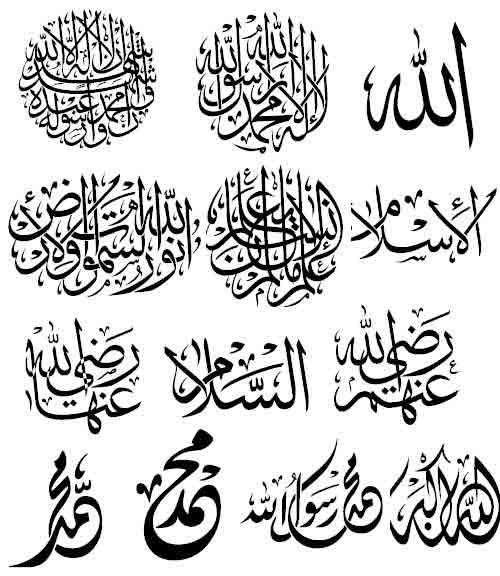 الله
لا إله إلا الله محمد رسول الله
أن لا إله إلا الله وأن محمدا عبده ورسوله
الأسلام
علم الإنسان ما لم يعلم
الله نور السموات والأرض
رضي الله عنهم
السلام
رضي الله عنها
الله أكبر
محمد رسول الله
محمد
محمد